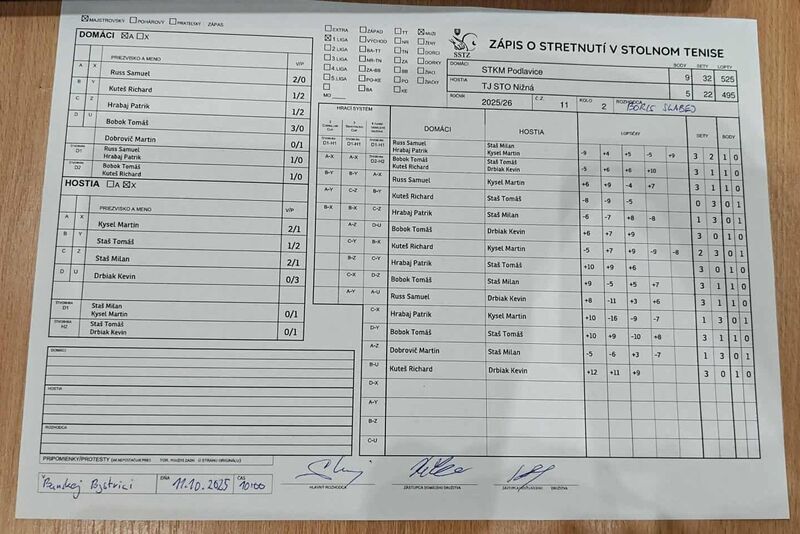 MAJSTROVSKÝ POHÁROVÝ PRIATEĽSKÝ ZÁPAS
DOMÁCI A X
PRIEZVISKO A MENO V/P
A X Russ Samuel 2/0
B Y Kuteš Richard 1/2
C Z Hrabaj Patrik 1/2
D U Bobok Tomáš 3/0
Dobrovič Martin 0/1
ŠTVORHRA D1 Russ Samuel
Hrabaj Patrik 1/0
ŠTVORHRA D2 Bobok Tomáš
Kuteš Richard 1/0
HOSTIA A X
PRIEZVISKO A MENO V/P
A X Kysel Martin 2/1
B Y Staš Tomáš 1/2
C Z Staš Milan 2/1
D U Drbiak Kevin 0/3
ŠTVORHRA D1 Staš Milan
Kysel Martin 0/1
ŠTVORHRA H2 Staš Tomáš
Drbiak Kevin 0/1
DOMÁCI
HOSTIA
ROZHODCA
PRIPOMIENKY/PROTESTY
Banskej Bystrici DŇA 11.10.2025 ČAS 10:00
EXTRA ZÁPAD TT MUŽI
1 LIGA VÝCHOD NR ŽENY
2 LIGA BA-TT TN DORCI
3 LIGA NR-TN ZA DORKY
4 LIGA ZA-BB BB ŽIACI
5 LIGA PO-KE PO ŽIAČKY
BA KE
MO
SSTZ
ZÁPIS O STRETNUTÍ V STOLNOM TENISE
DOMÁCI STKM Podlavice BODY 9 SETY 32 LOPTY 525
HOSTIA TJ STO Nižná 5 22 495
ROČNÍK 2025/26 Č.Z. 11 KOLO 2 ROZHODCA BORIS SLABEJ
HRACÍ SYSTÉM DOMÁCI HOSTIA LOPTIČKY SETY BODY
D1-H1 D1-H1 D1-H1 Russ Samuel Staš Milan
Hrabaj Patrik Kysel Martin -9 +4 +5 -5 +9 3 2 1 0
A-X A-X D2-H2 Bobok Tomáš Staš Tomáš
Kuteš Richard Drbiak Kevin -5 +6 +6 +10 3 1 1 0
B-Y B-Y A-X Russ Samuel Kysel Martin +6 +9 -4 +7 3 1 1 0
A-Y C-Z B-Y Kuteš Richard Staš Tomáš -8 -9 -5 0 3 0 1
B-X B-X C-Z Hrabaj Patrik Staš Milan -6 -7 +8 -8 1 3 0 1
A-Z D-U Bobok Tomáš Drbiak Kevin +6 +7 +9 3 0 1 0
C-Y B-X Kuteš Richard Kysel Martin -5 +7 +9 -9 -8 2 3 0 1
B-Z C-Y Hrabaj Patrik Staš Tomáš +10 +9 +6 3 0 1 0
C-X D-Z Bobok Tomáš Staš Milan +9 -5 +5 +7 3 1 1 0
A-Y A-U Russ Samuel Drbiak Kevin +8 -11 +3 +6 3 1 1 0
C-X Hrabaj Patrik Kysel Martin +10 -16 -9 -7 1 3 0 1
D-Y Bobok Tomáš Staš Tomáš +10 +9 -10 +8 3 1 1 0
A-Z Dobrovič Martin Staš Milan -5 -6 +3 -7 1 3 0 1
B-U Kuteš Richard Drbiak Kevin +12 +11 +9 3 0 1 0
D-X
A-Y
B-Z
C-U
HLAVNÝ ROZHODCA ZÁSTUPCA DOMÁCEHO DRUŽSTVA DRUŽSTVA